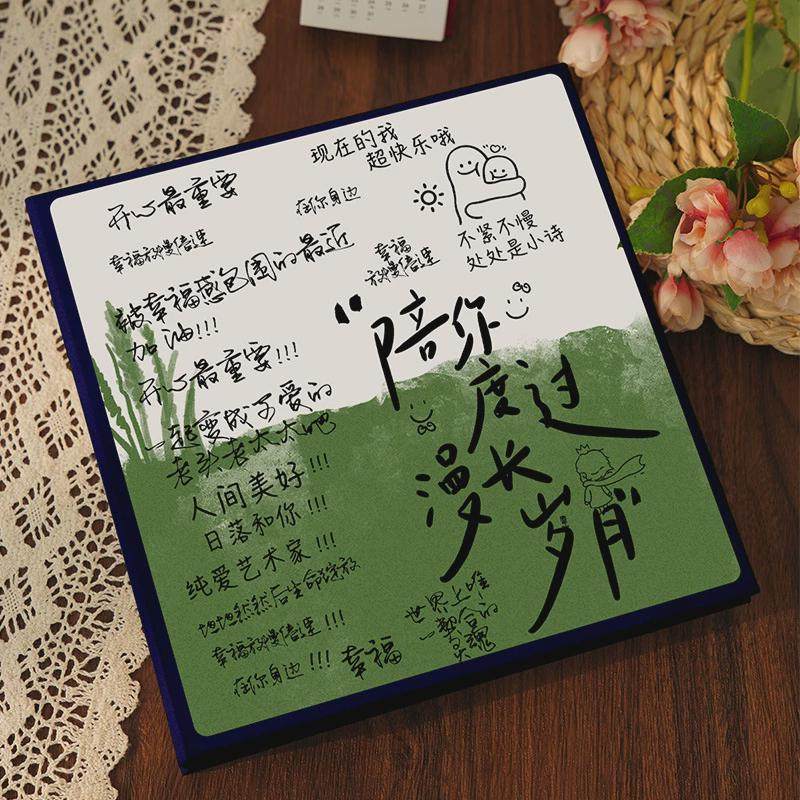 现在的我
超快乐哦
开心最重要
在你身边
幸福被慢倍速
幸福
被慢倍速
不紧不慢
处处是小诗
被幸福感包围的最近
加油!!!
开心最重要!!!
一起变成可爱的
老头老太太吧
人间美好!!!
日落和你!!!
纯爱艺术家!!!
坦坦然然后生命绽放
幸福被慢倍速!!!
在你身边!!!
幸福
世界上唯
一契合的
灵魂
“陪你
度过
漫长
岁月”